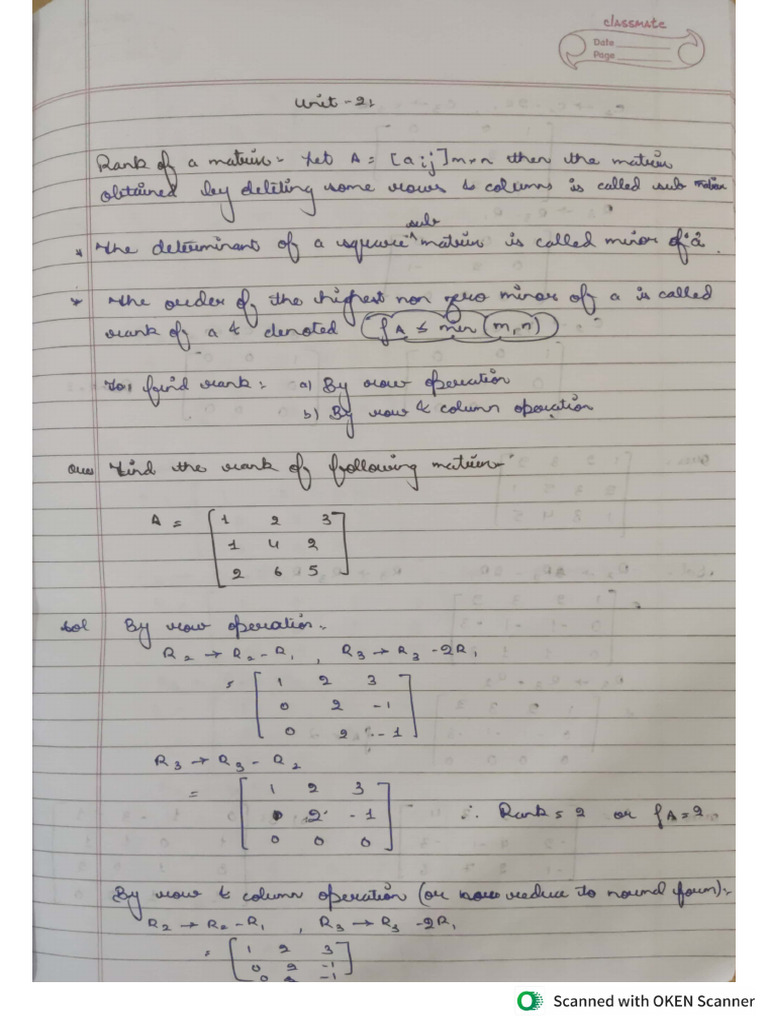 classmate
Date
Page
Unit - 2:
Rank of a matrix:- Let A = [aij]m×n then the matrix
obtained by deliting some rows & columns is called sub matrix
sub
* The determinant of a square^ matrix is called minor of 'a.
* The order of the highest non zero minor of a is called
rank of a & denoted (ρA ≤ min (m,n))
To, find rank: a) By row operation
b) By row & column operation
Ques Find the rank of following matrix-
A = [1 2 3
1 4 2
2 6 5]
Sol By row operation:-
R2 → R2 - R1 , R3 → R3 - 2R1
= [1 2 3
0 2 -1
0 2 -1]
R3 → R3 - R2
= [1 2 3
0 2 -1
0 0 0] ∴ Rank = 2 or ρA = 2
By row & column operation (or reduce to normal form):-
R2 → R2 - R1 , R3 → R3 - 2R1
= [1 2 3
0 2 -1
0 2 -1]
Scanned with OKEN Scanner